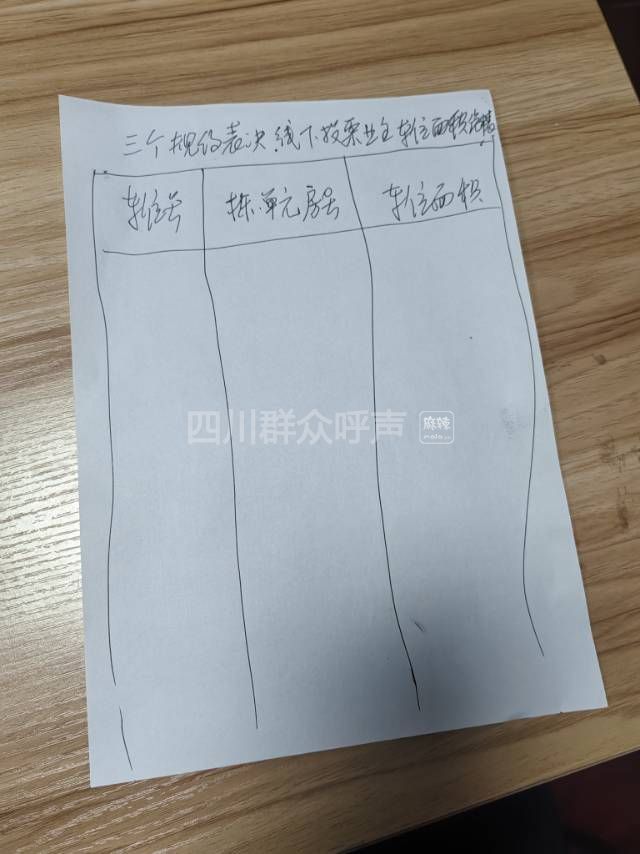 三个规约表决线下投票业主车位面积清
车位号 栋.单元.房号 车位面积
四川群众呼声 麻辣